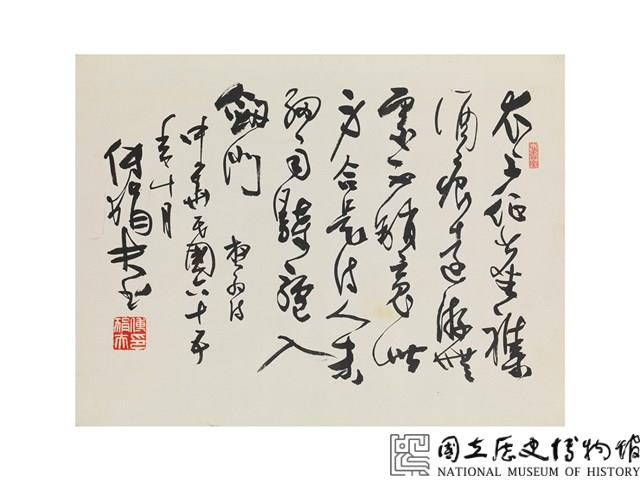 衣上征塵雜
酒痕遠遊無
處不銷魂此
身合是詩人未
細雨騎驢入
劍門 放翁詩
中華民國六十年
十月
傅狷夫書
國立歷史博物館
NATIONAL MUSEUM OF HISTORY